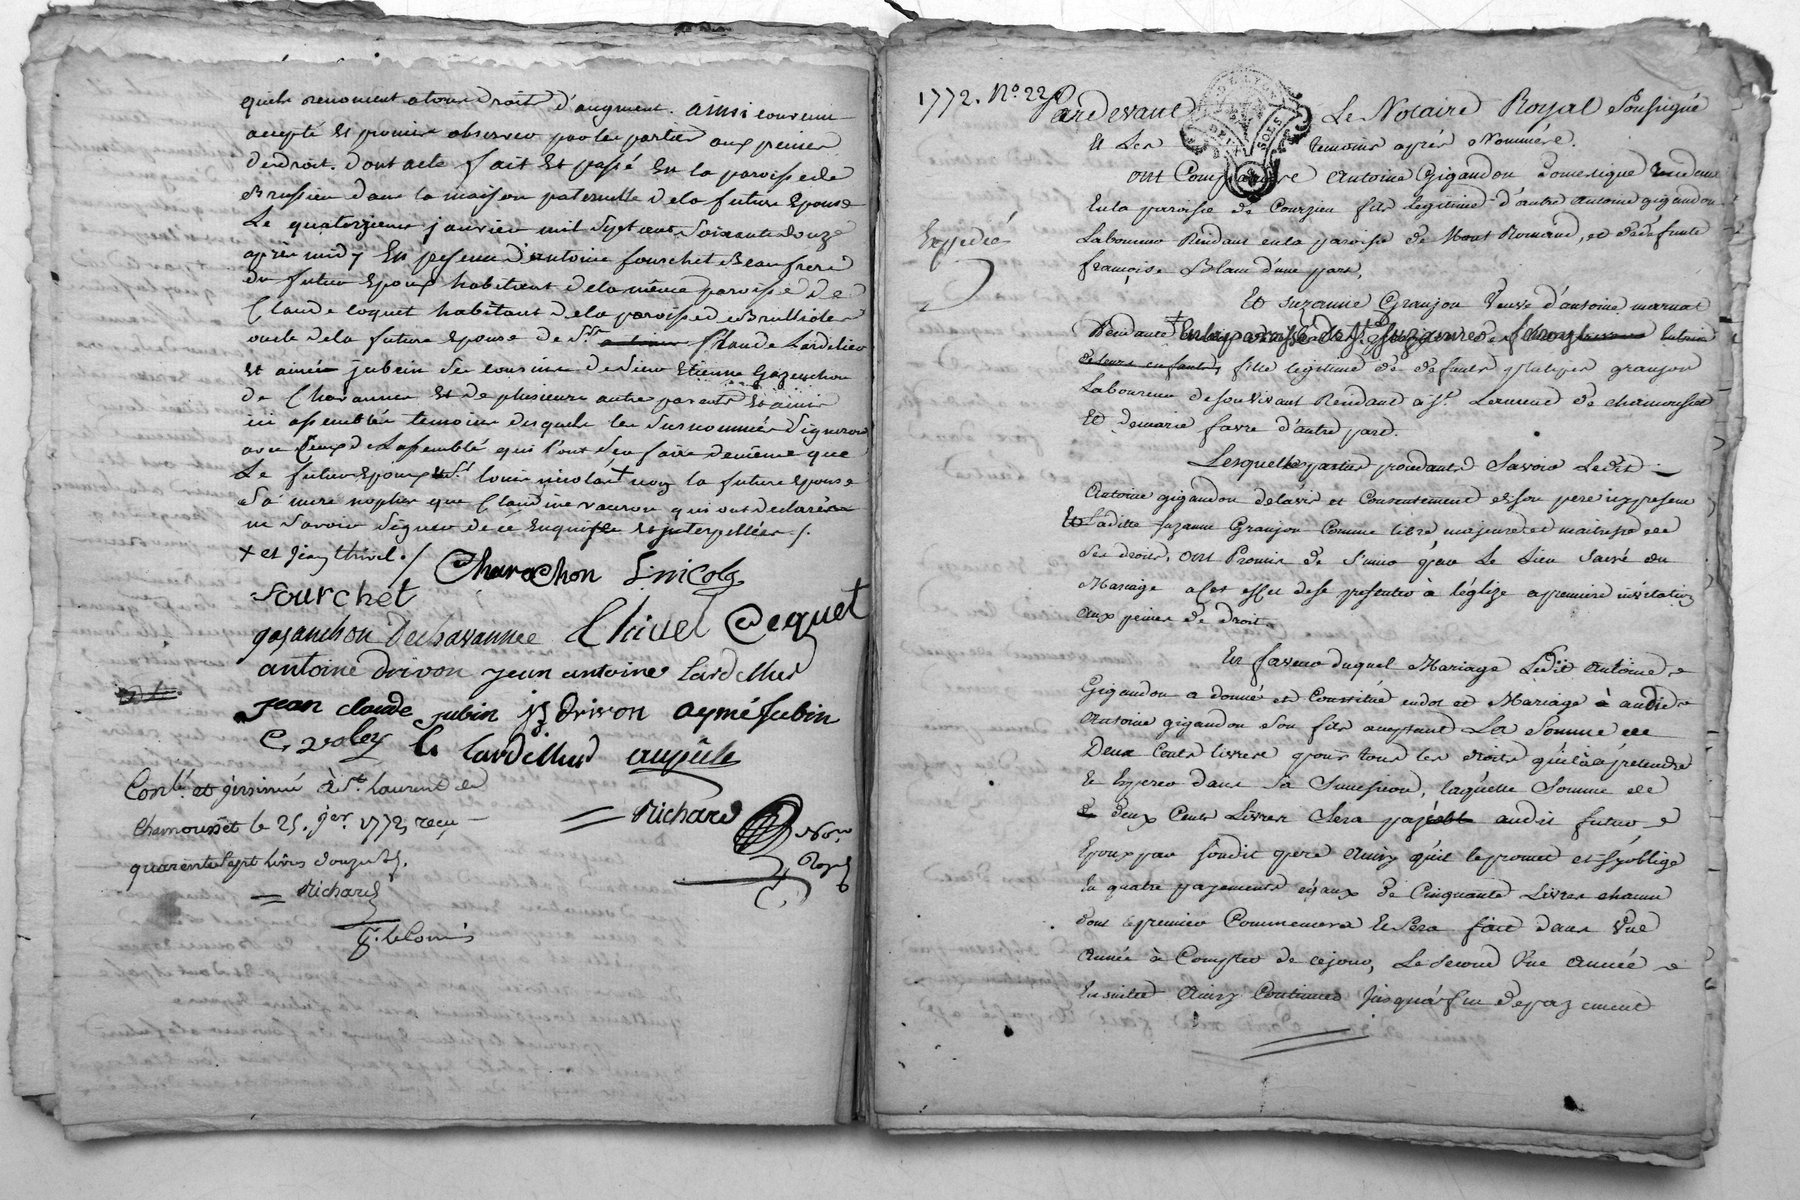 quels renoncent a tous droit d'augment. ainsi convenu
accepté et promis observer par les parties aux peines
dedroit. dont acte fait et passé En la paroisse de
Brussieu dans la maison paternelle dela future Epouse
Le quatorzieme janvier mil Sept cent Soixante douze
après midy En presence d'antoine fourchet Beaufrere
du futur Epoux habitant dela même paroisse de
Claude coquet habitant dela paroisse de Brulliolles
oncle dela future Epouse de Sr. Claude Lardellier
et aimée jubein Ses cousins de Sieur Etienne Gazanchon
de Chavannes Et de plusieurs autre parents Et amis
ici assemblés temoins desquels les Surnommés Signeront
avec Ceux de Lassemblé qui l'ont Sçu faire demême que
Le futur Epoux et Sr. louis nicolas + non la future Epouse
Sa mere nyplus que Claudine vauron qui ont declarés
ne Savoir Signer de ce Enquises et interpellées /.
+ et Jean thivel. /
Charachon L. nicolas
fourchet
gazanchon Dechavannes thivel Coquet
antoine drivon jean antoine Lardellier
jean claude jubin drivon aymé Jubin
C. Lardellier
Conlé. et jnsinué à St. Laurent de
Chamousset le 25. jer. 1772, reçu
quarente Sept livres douze s.
Richard
Richard
Nore.
Royal
1772. No. 22
Pardevant Le Notaire Royal Soussigné
Et Les temoins après Nommés.
ont Comparu Antoine Gigandon Domestique Residant
En la paroisse de Courzieu fils legitime d'autre antoine gigandon
Laboureur Residant en la paroisse de Mont Romand, et dedéfunte
françoise Blanc d'une part,
Expedié
Et Suzanne Granjon Veuve d'antoine marnat
Residante + En la paroisse de
de leurs enfants, fille legitime de défunts granjon
Laboureur de son vivant Residant à St. Laurent de chamousset
Et de marie favre d'autre part.
Lesquelles parties procedants Savoir Ledit
Antoine gigandon delavis et Consentement deson pere icy present
Et Laditte Suzanne Granjon Comme libre majeure et maitresse de
Ses droits, ont Promis de S'unir par Le Lien Sacré du
Mariage a Cet effet de se presenter à l'église a premiere invitation
aux peines de droit.
En faveur duquel Mariage Ledit Antoine
Gigandon a donné et Constitué en dot et Mariage à audit
Antoine gigandon Son fils acceptant La Somme de
Deux Cents livres pour tous les droits qu'il a à prétendre
et Esperer dans Sa Succession, laquelle Somme de
deux Cents Livres Sera payéé audit futur
Epoux par Sondit pere Ainsy qu'il le promet et S'y oblige
En quatre payements egaux de Cinquante Livres chacun
dont le premier Commencera Et Sera fait dans Une
Année à Compter de cejour, Le Second Une Année
Ensuite Ainsy Continuer Jusqu'a fin de payement